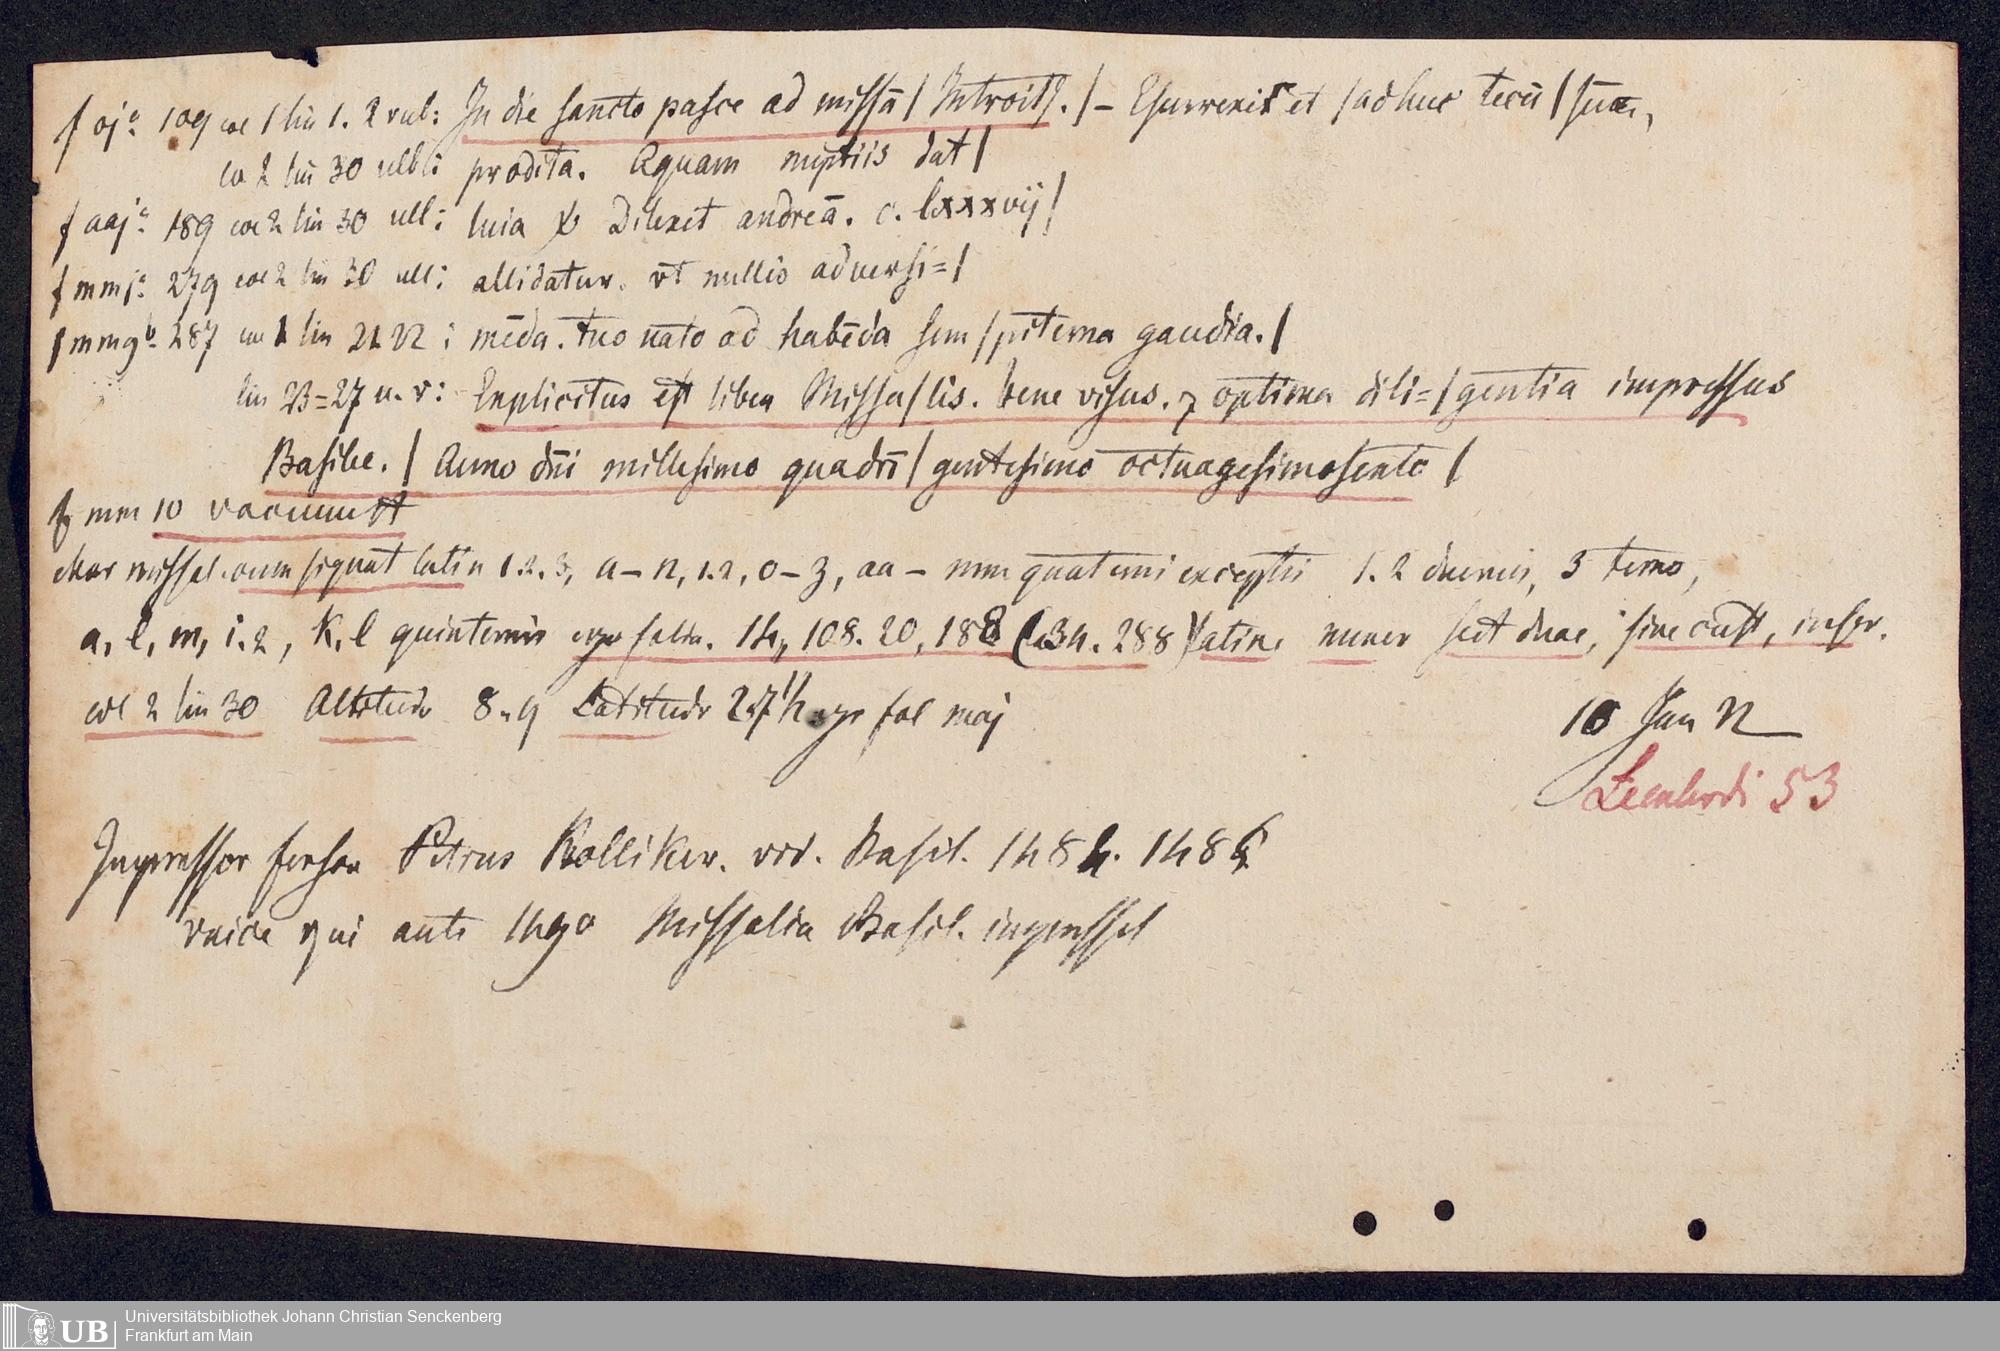 f oj a 109 col 1 lin 1. 2 rub: In die sancto pasce ad missā / Introit9. / – Esurrexit et / adhuc tecū / sum,
co 2 lin 30 ult: prodita. Aquam nuptiis dat /
f aaj a 189 col 2 lin 30 ult: luia ℣ Dilexit andreā. c. lxxxvij /
f mmj a 279 col 2 lin 30 ult: allidatur. vt nullis aduersi= /
f mm9 b 287 col 1 lin 21 22: mēda. tuo nato ad habēda sem / piterna gaudia. /
lin 23=27 n. r: Explicitus est liber Missa / lis. bene visus. ⁊ optima dili= / gentia impressus
Basilee. / Anno dni millesimo quadri / gentesimo octuagesimosexto /
f mm 10 vacuum
char missal. cum signat latin 1. 2. 3, a – n, 1. 2, o – z, aa – mm quaterni exceptis 1. 2 duernis, 3 terno,
a, l, m, 1. 2, k, l quinternis ergo folia. 14, 108. 20, 188 (34. 288) latine numer sunt duae, sine cust, inscr.
col 2 lin 30 Altitudo 8.9 Latitudo 27½ ergo fol maj
18 Jan 72
Leonhardi 53
Impressor forsan Petrus Kolliker. vid. Basil. 1484. 1485
unice qui ante 1490 Missalia Basil. impressit
Universitätsbibliothek Johann Christian Senckenberg
UB Frankfurt am Main